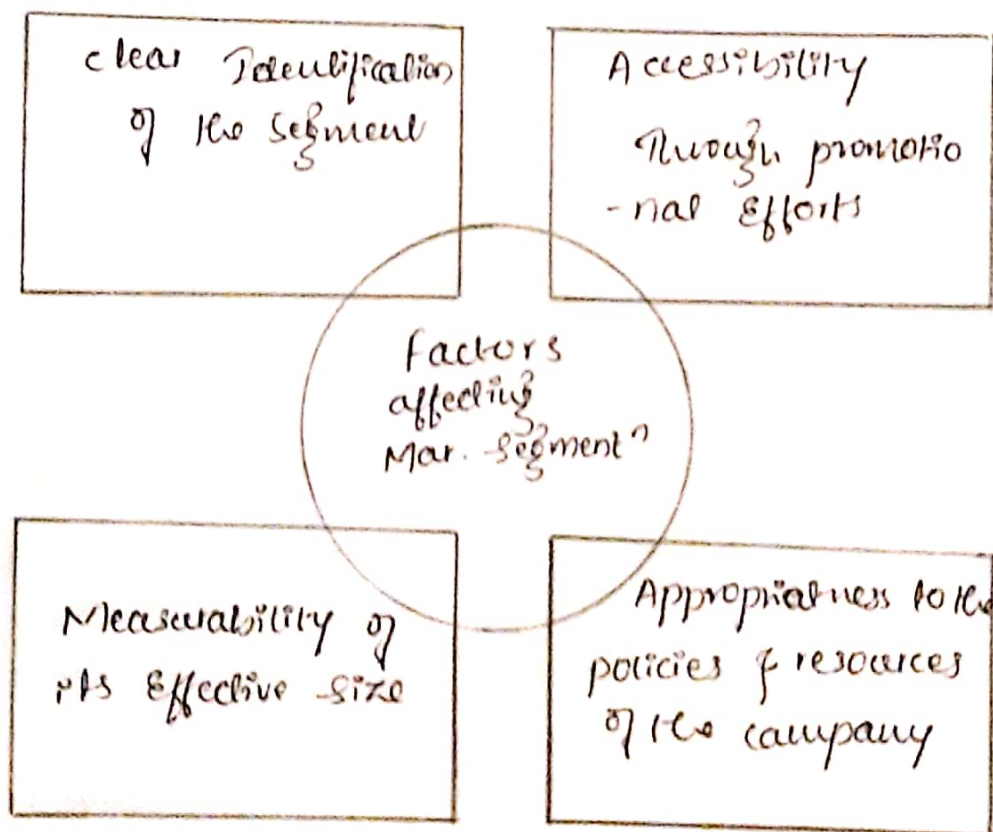 clear Identification
of the segment
Accessibility
Through promotio
-nal Efforts
Factors
affecting
Mar. Segmentⁿ
Measurability of
its Effective size
Appropriatness to the
policies & resources
of the company